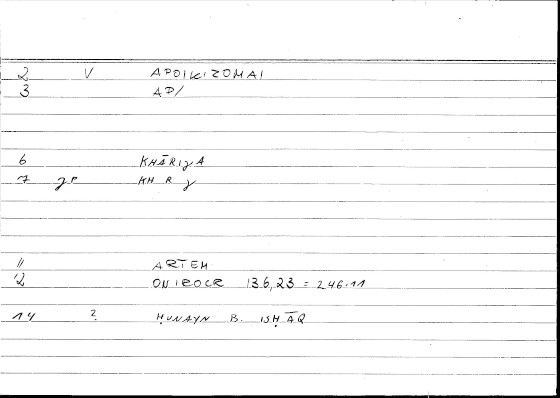 2 V APOIKIZOMAI
3 AP/
6 KHĀRIJA
7 JP KH R J
11 ARTEM
12 ONIROCR 13.6,23 = 246.11
14 ? ḤUNAYN B. ISḤĀQ